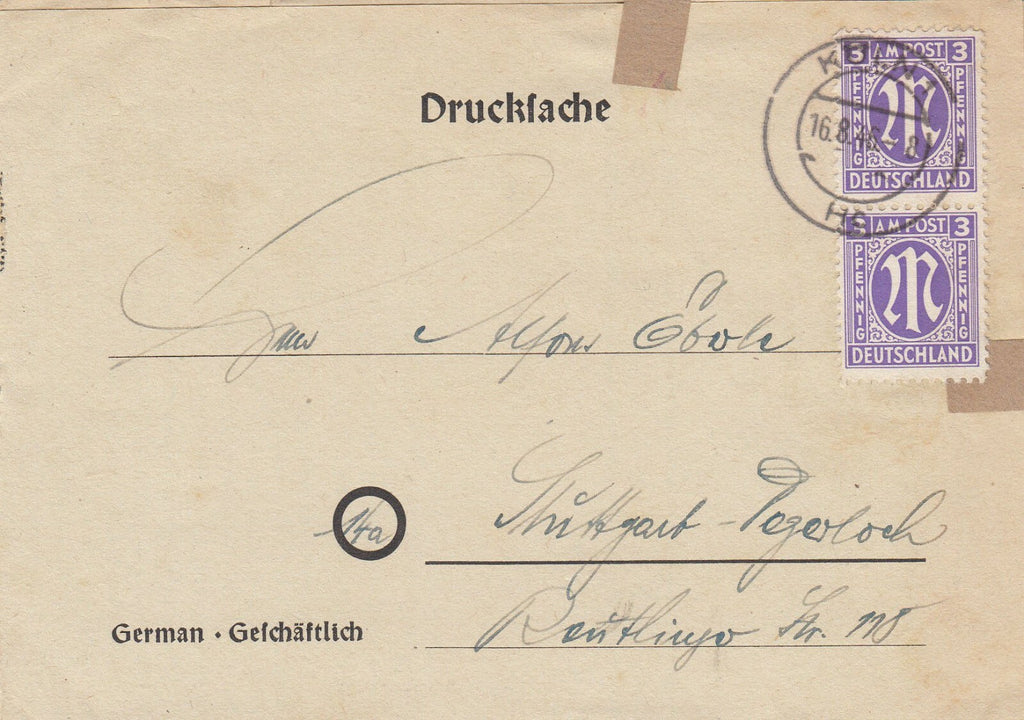 Druckſache
3 AM POST 3
PFENNIG PFENNIG
DEUTSCHLAND
KÖLN 1
16.8.46.- 8
3 AM POST 3
PFENNIG PFENNIG
DEUTSCHLAND
Alfons
14a
Stuttgart - Degerloch
Reutlinger Str. 118
German · Geſchäftlich